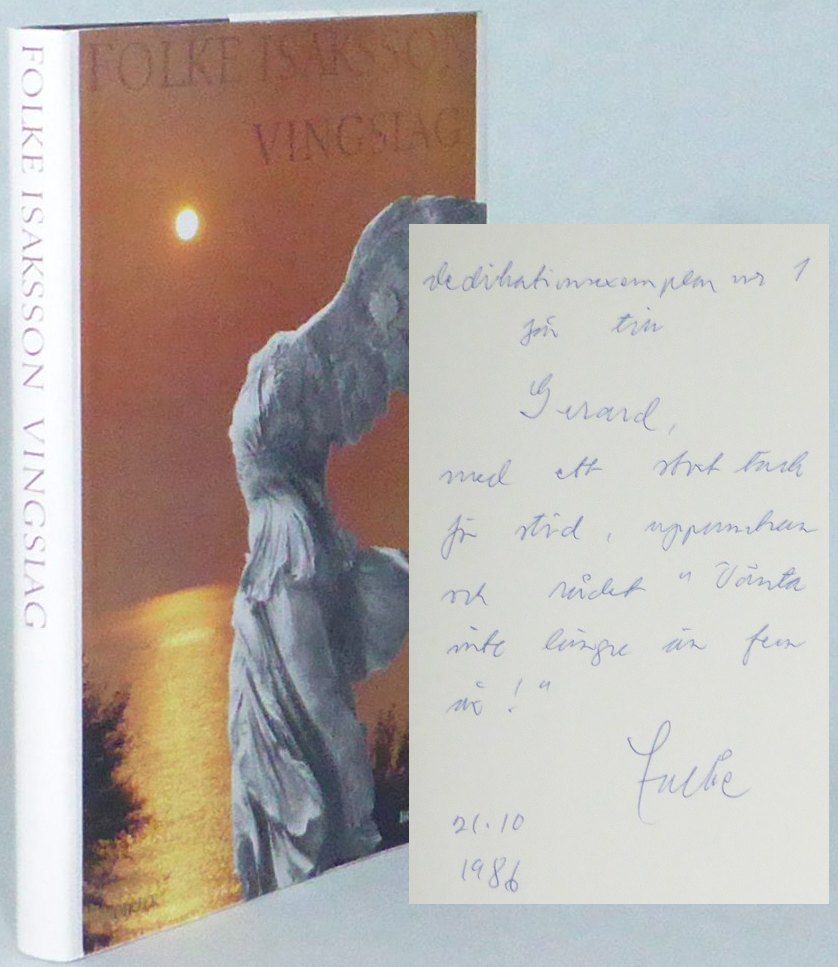 FOLKE ISAKSSON VINGSLAG
FOLKE ISAKSSON
VINGSLAG
dedikationsexemplar nr 1
Gerard,
med ett stort tack
för stöd, uppmuntran
och rådet "Vänta
inte längre än fem
år!"
Folke
21.10
1986